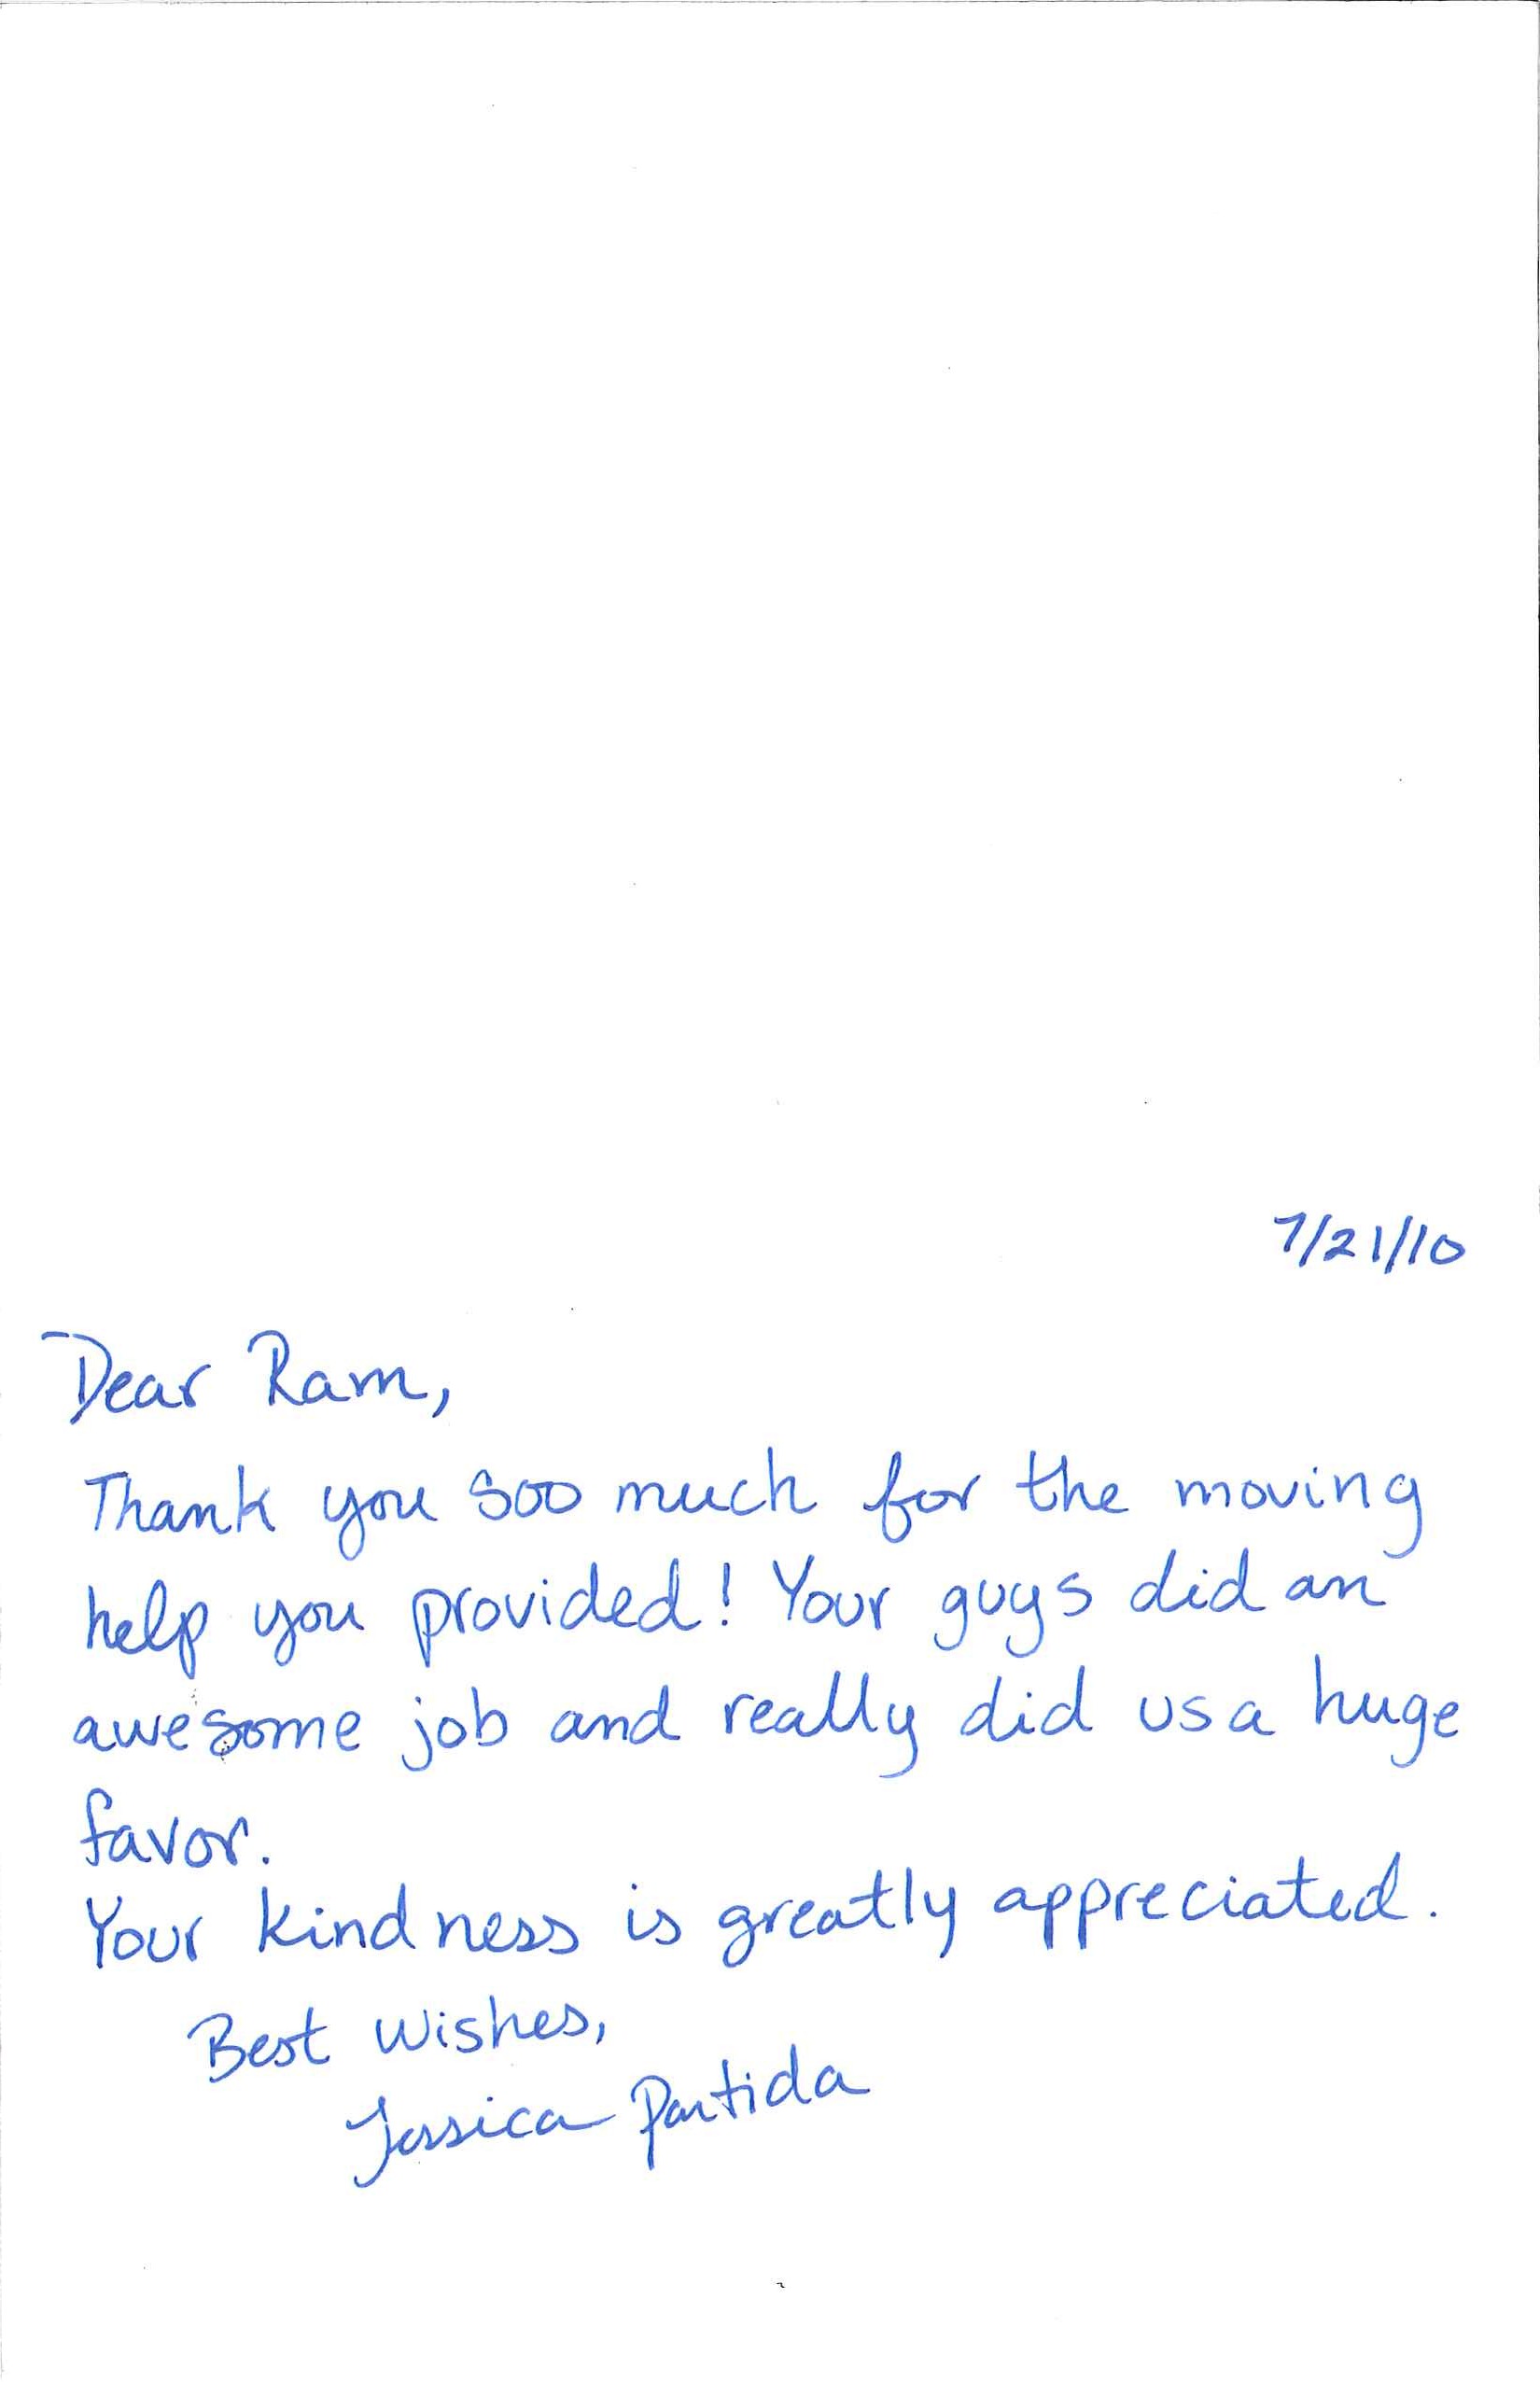 7/21/10
Dear Ram,
Thank you soo much for the moving
help you provided! Your guys did an
awesome job and really did us a huge
favor.
Your kindness is greatly appreciated.
Best Wishes,
Jessica Partida